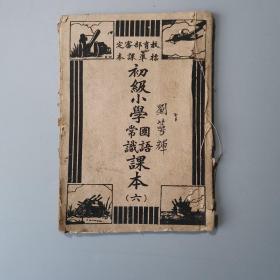 教育部審定
標準課本
初級小學
國語
常識
課本
(六)
劉
輝